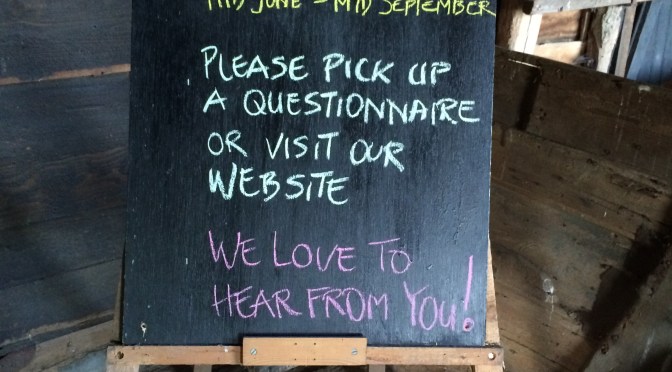 MID JUNE - MID SEPTEMBER
PLEASE PICK UP
A QUESTIONNAIRE
OR VISIT OUR
WEBSITE
WE LOVE TO
HEAR FROM YOU!